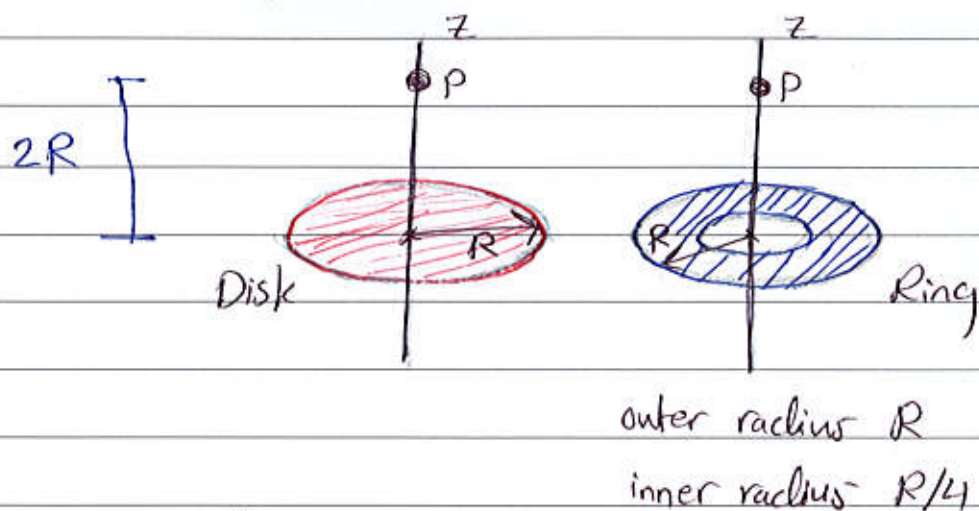 Z Z
P P
2R
R R
Disk Ring
outer radius R
inner radius R/4